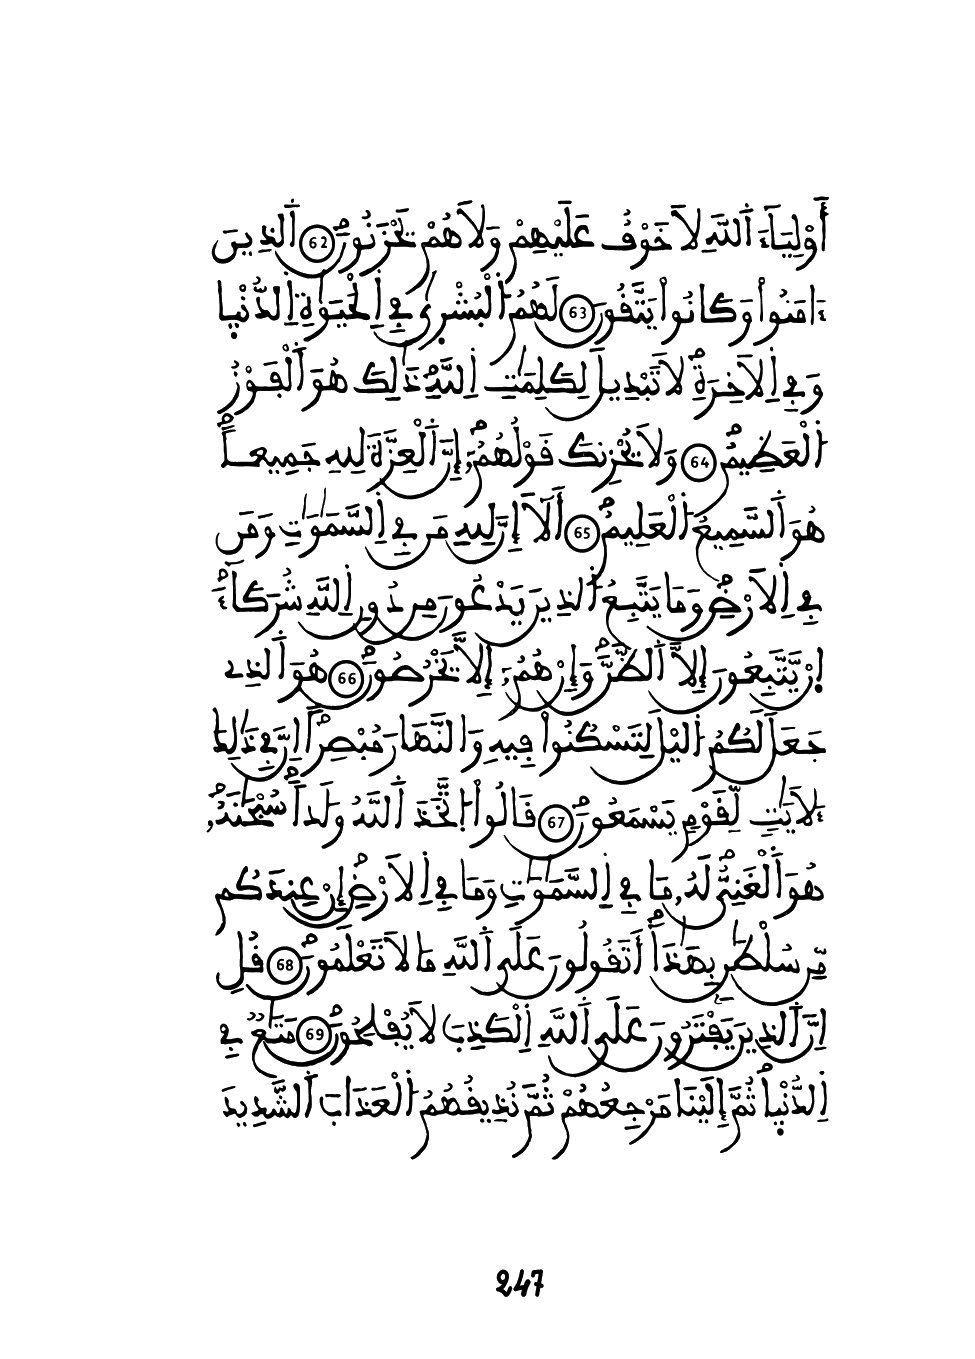 أَوْلِيَآءَ اَ۬للَّهِ لَا خَوْفٌ عَلَيْهِمْ وَلَا هُمْ يَحْزَنُونَۖ 62 اَ۬لذِينَ
ءَامَنُواْ وَكَانُواْ يَتَّقُونَ 63 لَهُمُ اُ۬لْبُشْر۪ىٰ فِے اِ۬لْحَيَوٰةِ اِ۬لدُّنْي۪ا
وَفِے اِ۬لَاخِرَةِۖ لَا تَبْدِيلَ لِكَلِمَٰتِ اِ۬للَّهِۖ ذَٰلِكَ هُوَ اَ۬لْفَوْزُ
اُ۬لْعَظِيمُۖ 64 وَلَا يُحْزِنكَ قَوْلُهُمُۥٓۖ إِنَّ اَ۬لْعِزَّةَ لِلهِ جَمِيعاًۖ
هُوَ اَ۬لسَّمِيعُ اُ۬لْعَلِيمُۖ 65 أَلَآ إِنَّ لِلهِ مَن فِے اِ۬لسَّمَٰوَٰتِ وَمَن
فِے اِ۬لَارْضِۖ وَمَا يَتَّبِعُ اُ۬لذِينَ يَدْعُونَ مِن دُونِ اِ۬للَّهِ شُرَكَآءَۖ
اِ۪نْ يَّتَّبِعُونَ إِلَّا اَ۬لظَّنَّۖ وَإِنْ هُمُۥٓ إِلَّا يَخْرُصُونَۖ 66 هُوَ اَ۬لذِے
جَعَلَ لَكُمُ اُ۬ليْلَ لِتَسْكُنُواْ فِيهِ وَالنَّهَارَ مُبْصِراًۖ اِنَّ فِے ذَٰلِكَ
ءَلَايَٰتٍ لِّقَوْمٍ يَسْمَعُونَۖ 67 قَالُواْ اُ۪تَّخَذَ اَ۬للَّهُ وَلَداًۖ سُبْحَٰنَهُۥۖ
هُوَ اَ۬لْغَنِيُّۖ لَهُۥ مَا فِے اِ۬لسَّمَٰوَٰتِ وَمَا فِے اِ۬لَارْضِۖ إِنْ عِندَكُم
مِّن سُلْطَٰنٍ بِهَٰذَاۖ أَتَقُولُونَ عَلَى اَ۬للَّهِ مَا لَا تَعْلَمُونَۖ 68 قُلِ
اِنَّ اَ۬لذِينَ يَفْتَرُونَ عَلَى اَ۬للَّهِ اِ۬لْكَذِبَ لَا يُفْلِحُونَۖ 69 مَتَٰعٌ فِے
اِ۬لدُّنْي۪اۖ ثُمَّ إِلَيْنَا مَرْجِعُهُمْ ثُمَّ نُذِيقُهُمُ اُ۬لْعَذَابَ اَ۬لشَّدِيدَ
247